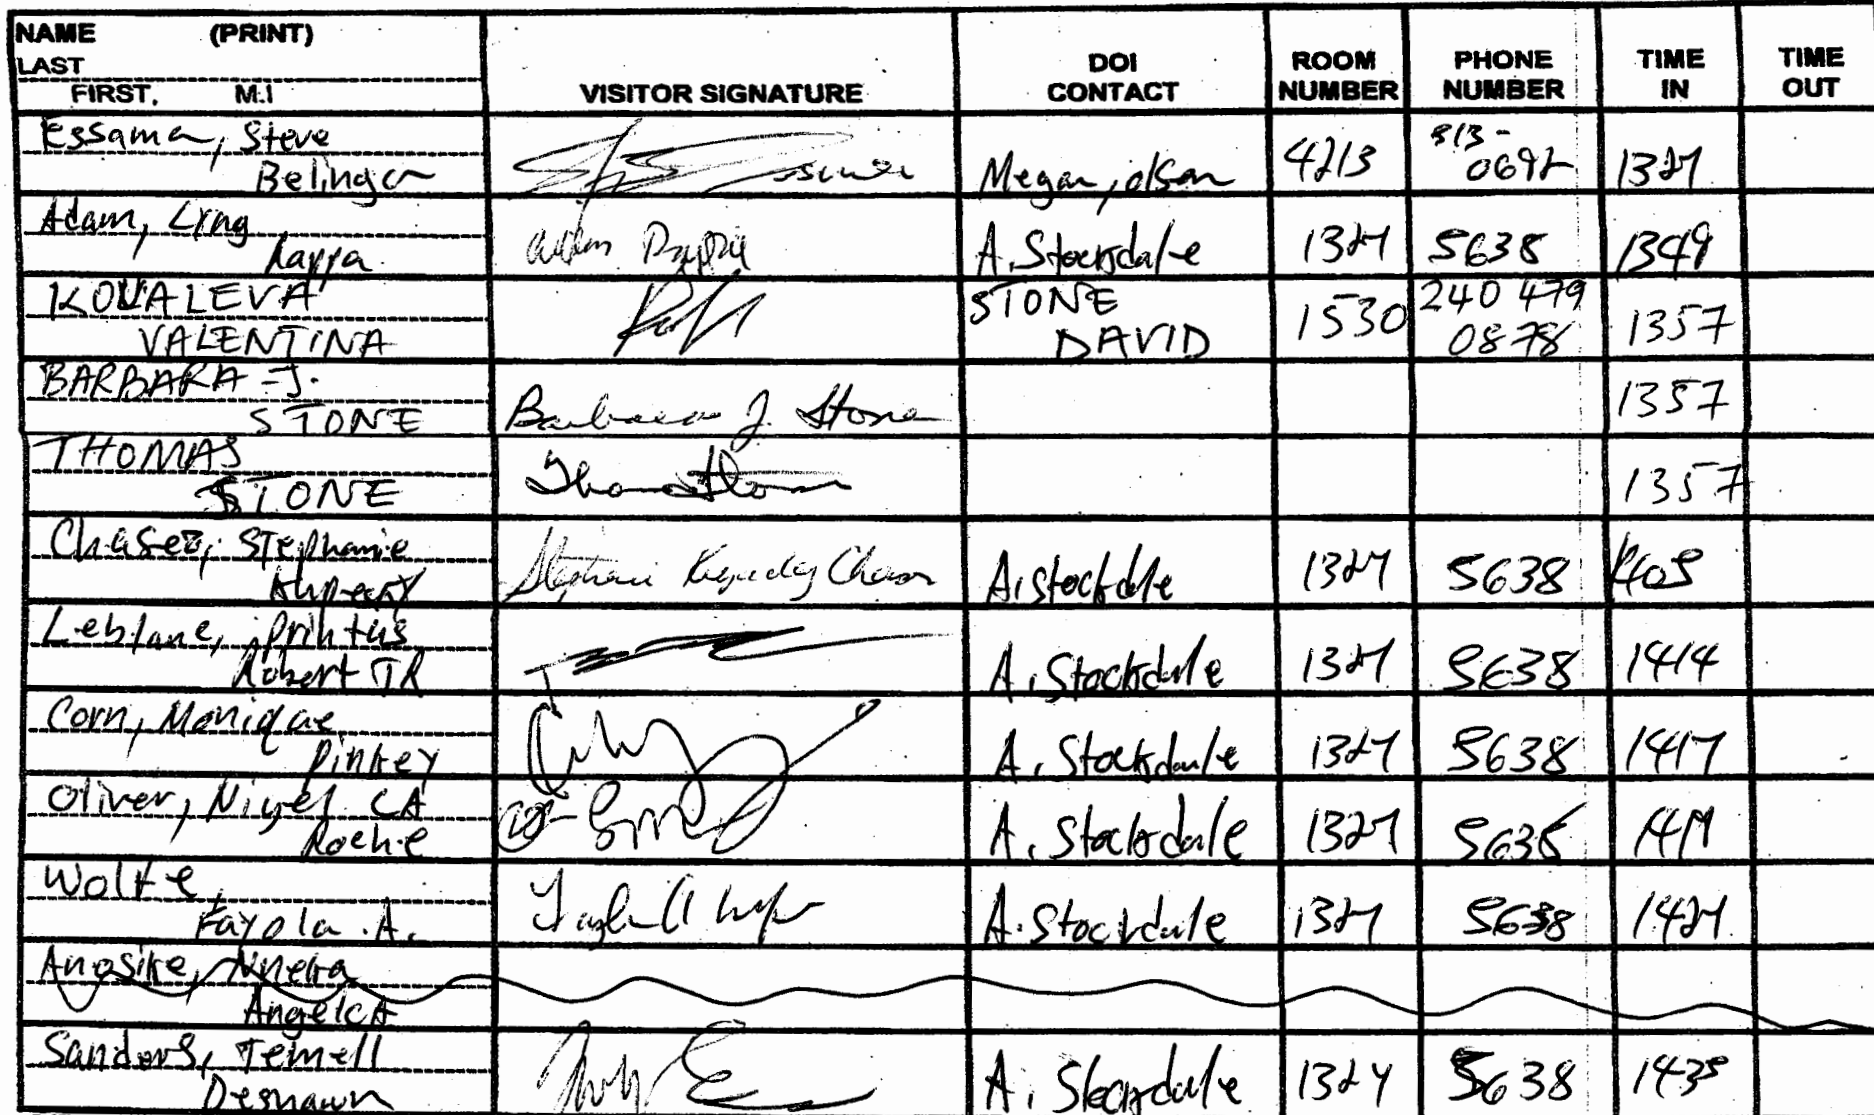 NAME (PRINT)
LAST
FIRST, M.I
VISITOR SIGNATURE
DOI CONTACT
ROOM NUMBER
PHONE NUMBER
TIME IN
TIME OUT
Essama, Steve
Belinga
Megan, olson 4213 813-0692 1327
Adam, Ling
A. Stockdale 1327 5638 1349
KOVALEVA
VALENTINA
STONE DAVID 1530 240 479 0878 1357
BARBARA J.
STONE Barbara J. Stone 1357
THOMAS
STONE Thomas Stone 1357
Stephanie
A. Stockdale 1327 5638 1405
Leblanc, Printus
Robert JR A. Stockdale 1327 5638 1414
Corn, Monique
Pinkey A. Stockdale 1327 5638 1417
Oliver, Nigel CA
Roche A. Stockdale 1327 5638
Wolfe,
Fayola A. A. Stockdale 1327 5638 1427
Anosike, Nneka
AngelcA
Sanders, Temell
Deshawn A. Stockdale 1327 5638 1435